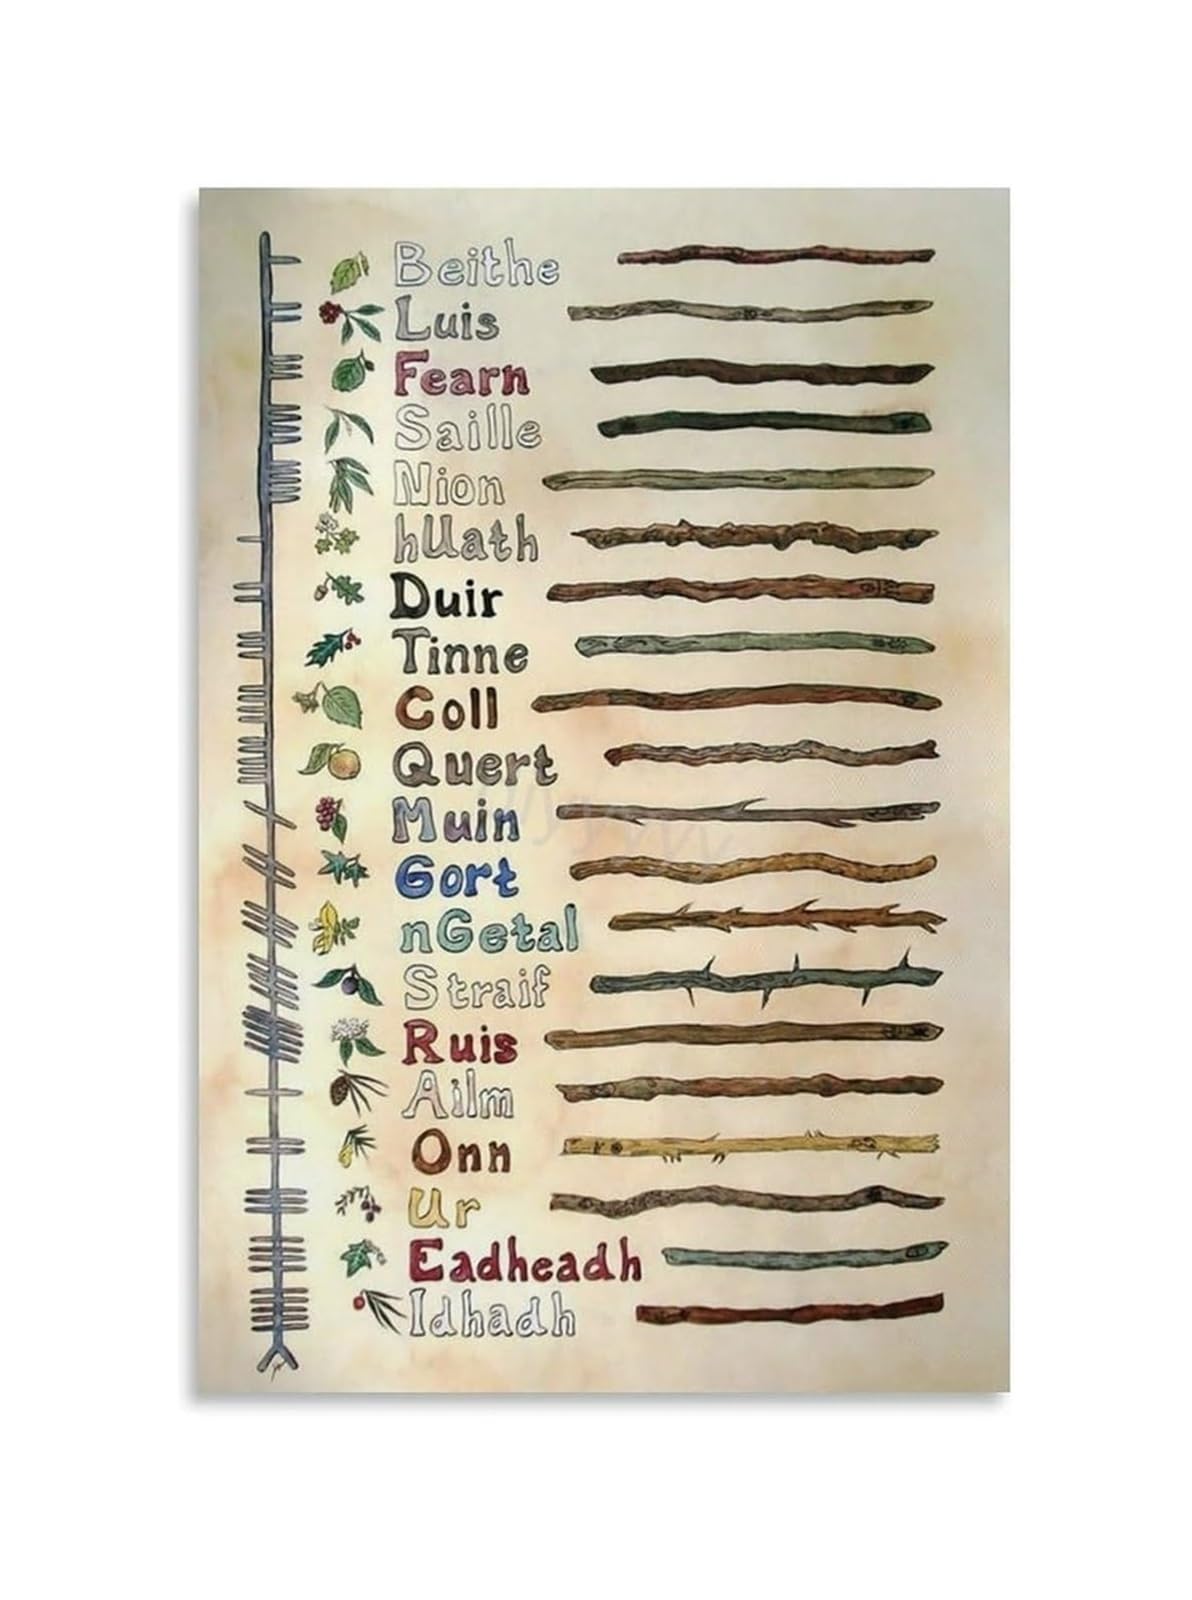 Beithe
Luis
Fearn
Saille
Nion
hUath
Duir
Tinne
Coll
Quert
Muin
Gort
nGetal
Straif
Ruis
Ailm
Onn
Ur
Eadheadh
Idhadh